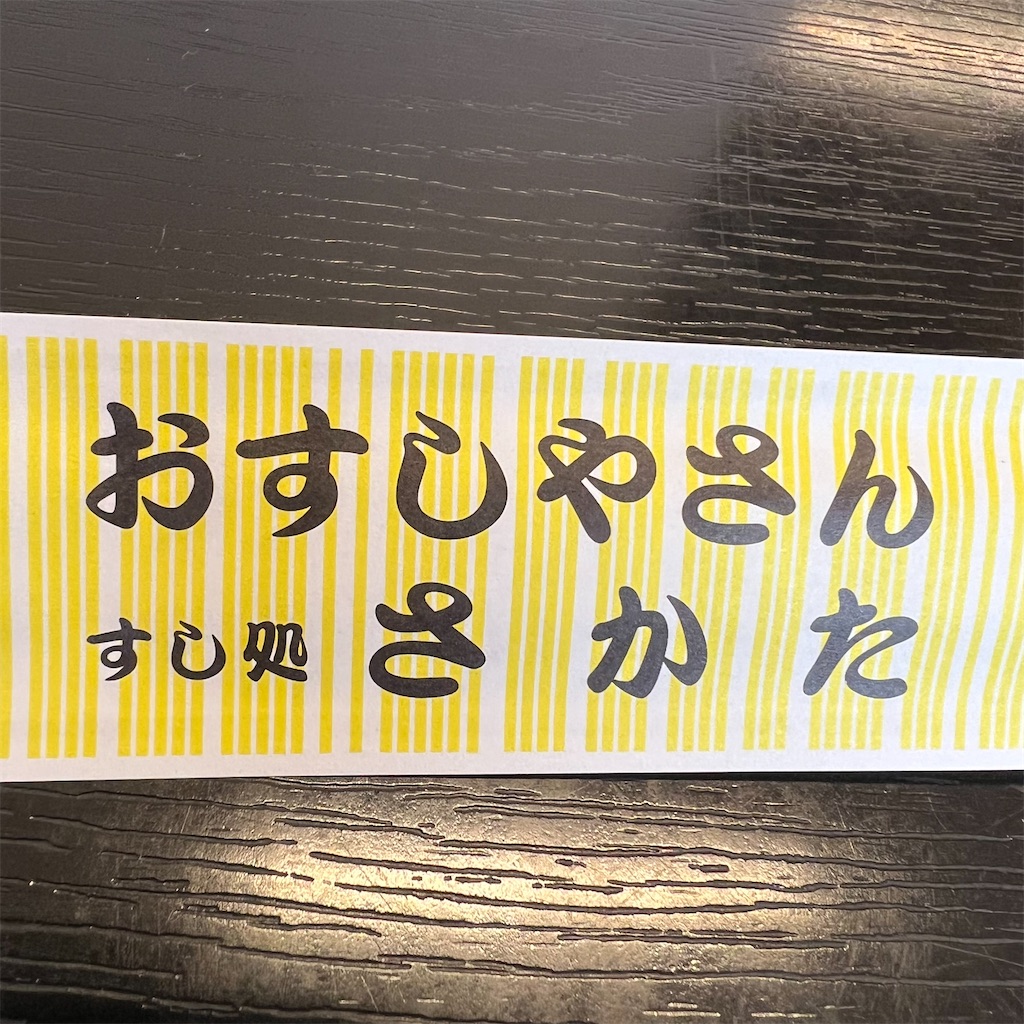 おすしやさん
すし処 さかた